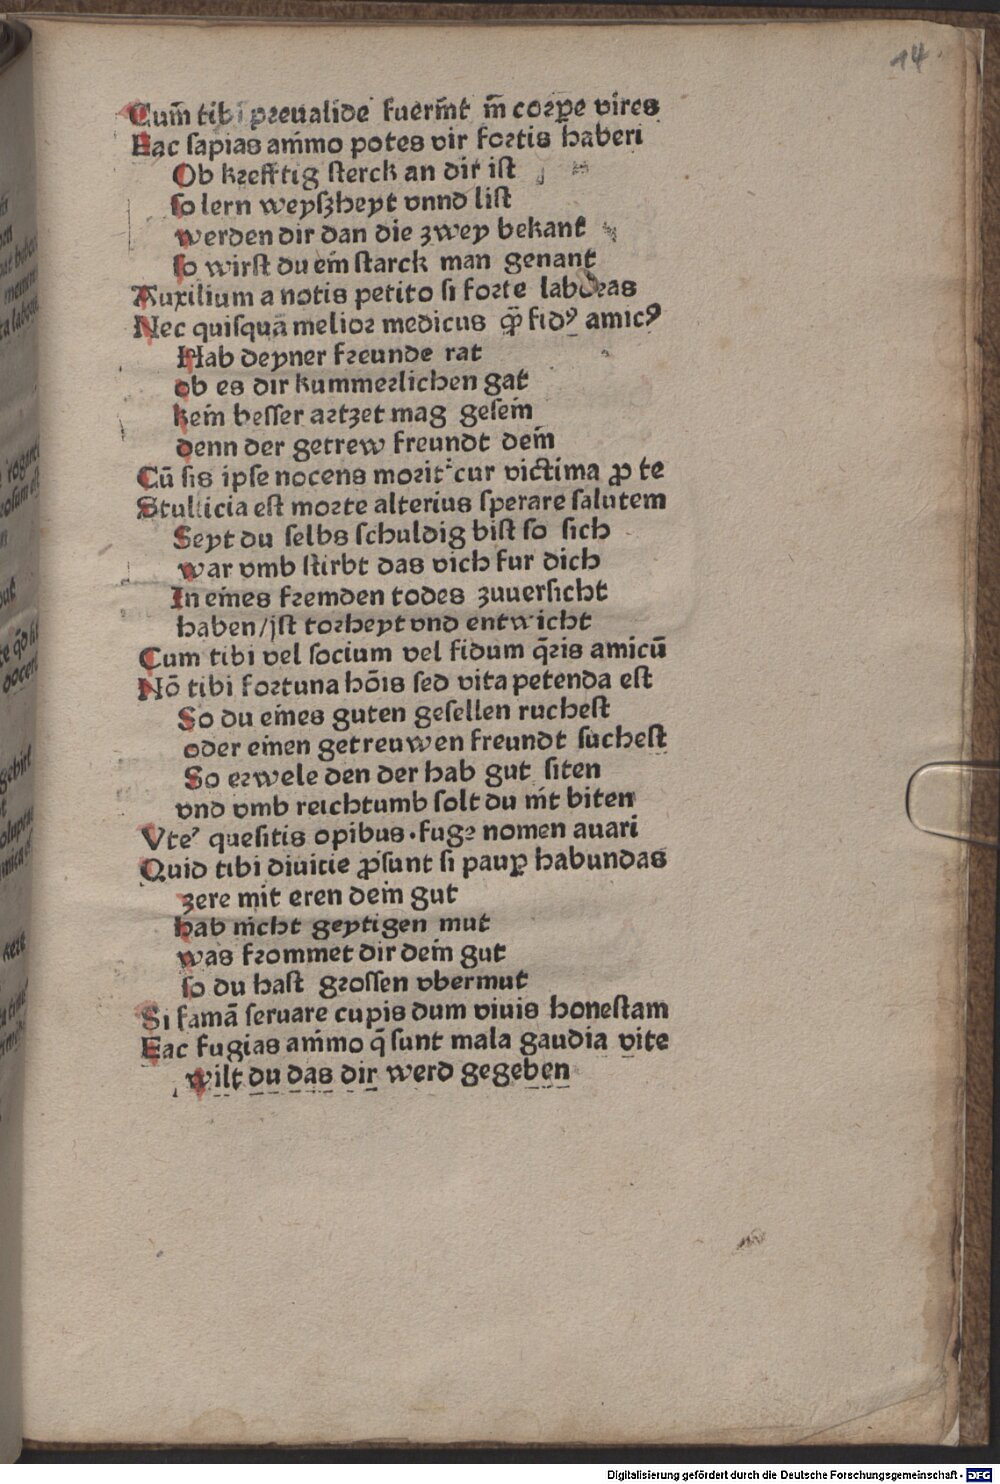 14
Cum̄ tibi preualide fuerīnt in̄ corꝑe vires
Fac sapias anīmo potes vir fortis haberi
Ob krefftig sterck an dir ist
so lern weyszheyt vnnd list
werden dir dan die zwey bekant
so wirst du ein starck man genant
Auxilium a notis petito si forte laboras
Nec quisquā melior medicus qͣ̄ fidꝰ amicꝰ
Hab deyner freunde rat
ob es dir kummerlichen gat
kein besser artzet mag gesein
denn der getrew freundt dein
Cū sis ipse nocens morit᷑ cur victima ꝓ te
Stulticia est morte alterius sperare salutem
Seyt du selbs schuldig bist so sich
war vmb stirbt das vich fur dich
In eines fremden todes zuuersicht
haben/ist torheyt vnd entwicht
Cum tibi vel socium vel fidum q̄ris amicū
Nō tibi fortuna hōis sed vita petenda est
So du eines guten gesellen ruchest
oder einen getreuwen freundt suchest
So erwele den der hab gut siten
vnd vmb reichtumb solt du nit biten
Vteꝰ quesitis opibus·fuge nomen auari
Quid tibi diuitie ꝓsunt si pauꝑ habundas
zere mit eren dein gut
hab nicht geytigen mut
was frommet dir dein gut
so du hast grossen vbermut
Si famā seruare cupis dum viuis honestam
Fac fugias anīmo q̄ sunt mala gaudia vite
wilt du das dir werd gegeben
Digitalisierung gefördert durch die Deutsche Forschungsgemeinschaft - DFG